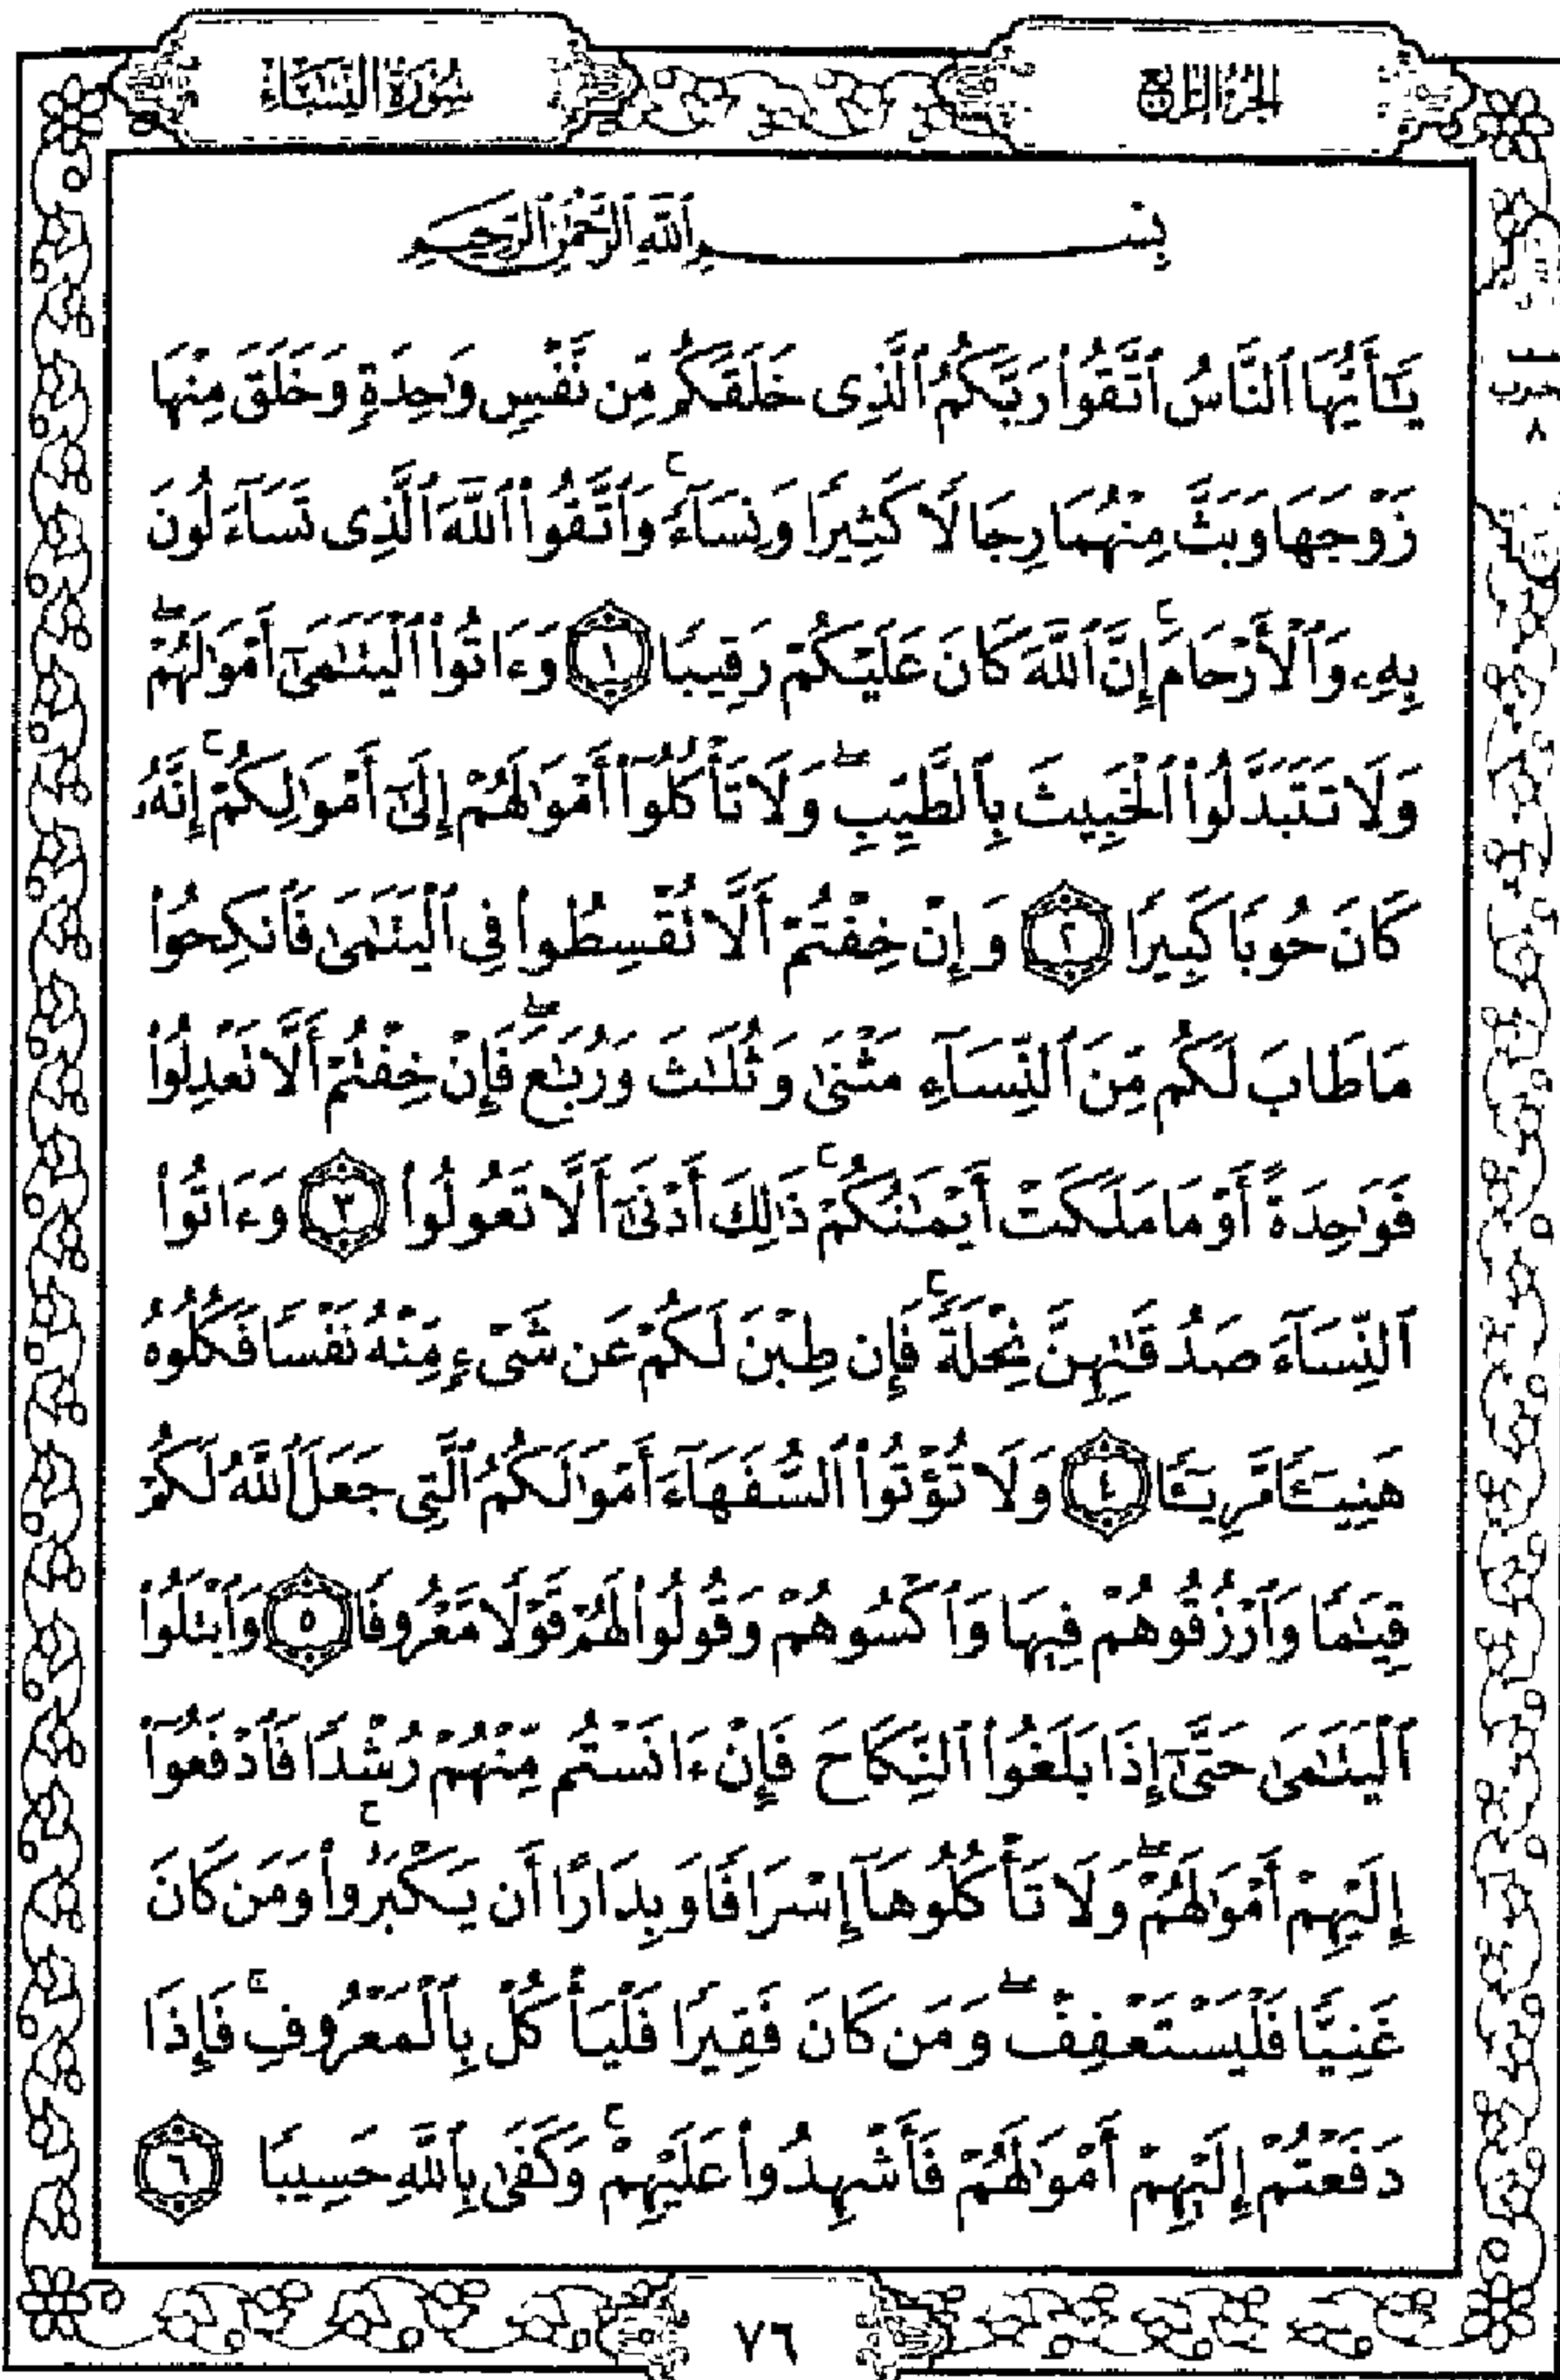 الجزء الرابع
سورة النساء
بِسْمِ ٱللَّهِ ٱلرَّحْمَٰنِ ٱلرَّحِيمِ
يَٰٓأَيُّهَا ٱلنَّاسُ ٱتَّقُوا۟ رَبَّكُمُ ٱلَّذِى خَلَقَكُم مِّن نَّفْسٍ وَٰحِدَةٍ وَخَلَقَ مِنْهَا
زَوْجَهَا وَبَثَّ مِنْهُمَا رِجَالًا كَثِيرًا وَنِسَآءً ۚ وَٱتَّقُوا۟ ٱللَّهَ ٱلَّذِى تَسَآءَلُونَ
بِهِۦ وَٱلْأَرْحَامَ ۚ إِنَّ ٱللَّهَ كَانَ عَلَيْكُمْ رَقِيبًا ١ وَءَاتُوا۟ ٱلْيَتَٰمَىٰٓ أَمْوَٰلَهُمْ ۖ
وَلَا تَتَبَدَّلُوا۟ ٱلْخَبِيثَ بِٱلطَّيِّبِ ۖ وَلَا تَأْكُلُوٓا۟ أَمْوَٰلَهُمْ إِلَىٰٓ أَمْوَٰلِكُمْ ۚ إِنَّهُۥ
كَانَ حُوبًا كَبِيرًا ٢ وَإِنْ خِفْتُمْ أَلَّا تُقْسِطُوا۟ فِى ٱلْيَتَٰمَىٰ فَٱنكِحُوا۟
مَا طَابَ لَكُم مِّنَ ٱلنِّسَآءِ مَثْنَىٰ وَثُلَٰثَ وَرُبَٰعَ ۖ فَإِنْ خِفْتُمْ أَلَّا تَعْدِلُوا۟
فَوَٰحِدَةً أَوْ مَا مَلَكَتْ أَيْمَٰنُكُمْ ۚ ذَٰلِكَ أَدْنَىٰٓ أَلَّا تَعُولُوا۟ ٣ وَءَاتُوا۟
ٱلنِّسَآءَ صَدُقَٰتِهِنَّ نِحْلَةً ۚ فَإِن طِبْنَ لَكُمْ عَن شَىْءٍ مِّنْهُ نَفْسًا فَكُلُوهُ
هَنِيٓـًٔا مَّرِيٓـًٔا ٤ وَلَا تُؤْتُوا۟ ٱلسُّفَهَآءَ أَمْوَٰلَكُمُ ٱلَّتِى جَعَلَ ٱللَّهُ لَكُمْ
قِيَٰمًا وَٱرْزُقُوهُمْ فِيهَا وَٱكْسُوهُمْ وَقُولُوا۟ لَهُمْ قَوْلًا مَّعْرُوفًا ٥ وَٱبْتَلُوا۟
ٱلْيَتَٰمَىٰ حَتَّىٰٓ إِذَا بَلَغُوا۟ ٱلنِّكَاحَ فَإِنْ ءَانَسْتُم مِّنْهُمْ رُشْدًا فَٱدْفَعُوٓا۟
إِلَيْهِمْ أَمْوَٰلَهُمْ ۖ وَلَا تَأْكُلُوهَآ إِسْرَافًا وَبِدَارًا أَن يَكْبَرُوا۟ ۚ وَمَن كَانَ
غَنِيًّا فَلْيَسْتَعْفِفْ ۖ وَمَن كَانَ فَقِيرًا فَلْيَأْكُلْ بِٱلْمَعْرُوفِ ۚ فَإِذَا
دَفَعْتُمْ إِلَيْهِمْ أَمْوَٰلَهُمْ فَأَشْهِدُوا۟ عَلَيْهِمْ ۚ وَكَفَىٰ بِٱللَّهِ حَسِيبًا ٦
٧٦